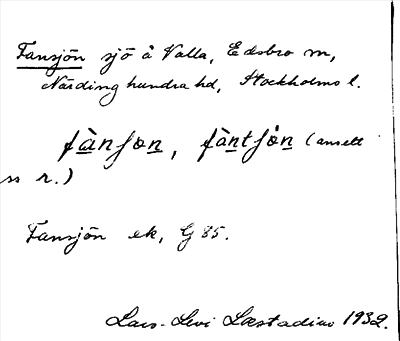 Fansjön sjö å Valla, Edsbro sn,
Närdinghundra hd, Stockholms l.
fànʃo̱n, fàntʃo̱n (ansett
ss r.)
Fansjön ek, G 85.
Lars-Levi Læstadius 1932.